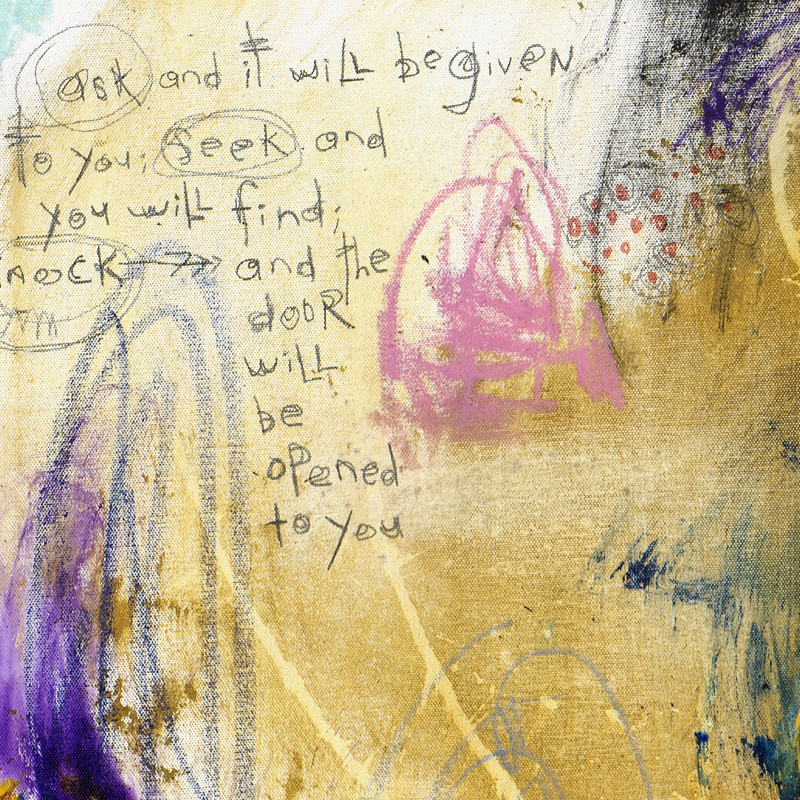 ask and it will be given
to you; seek and
you will find;
knock and the
door
will
be
opened
to you